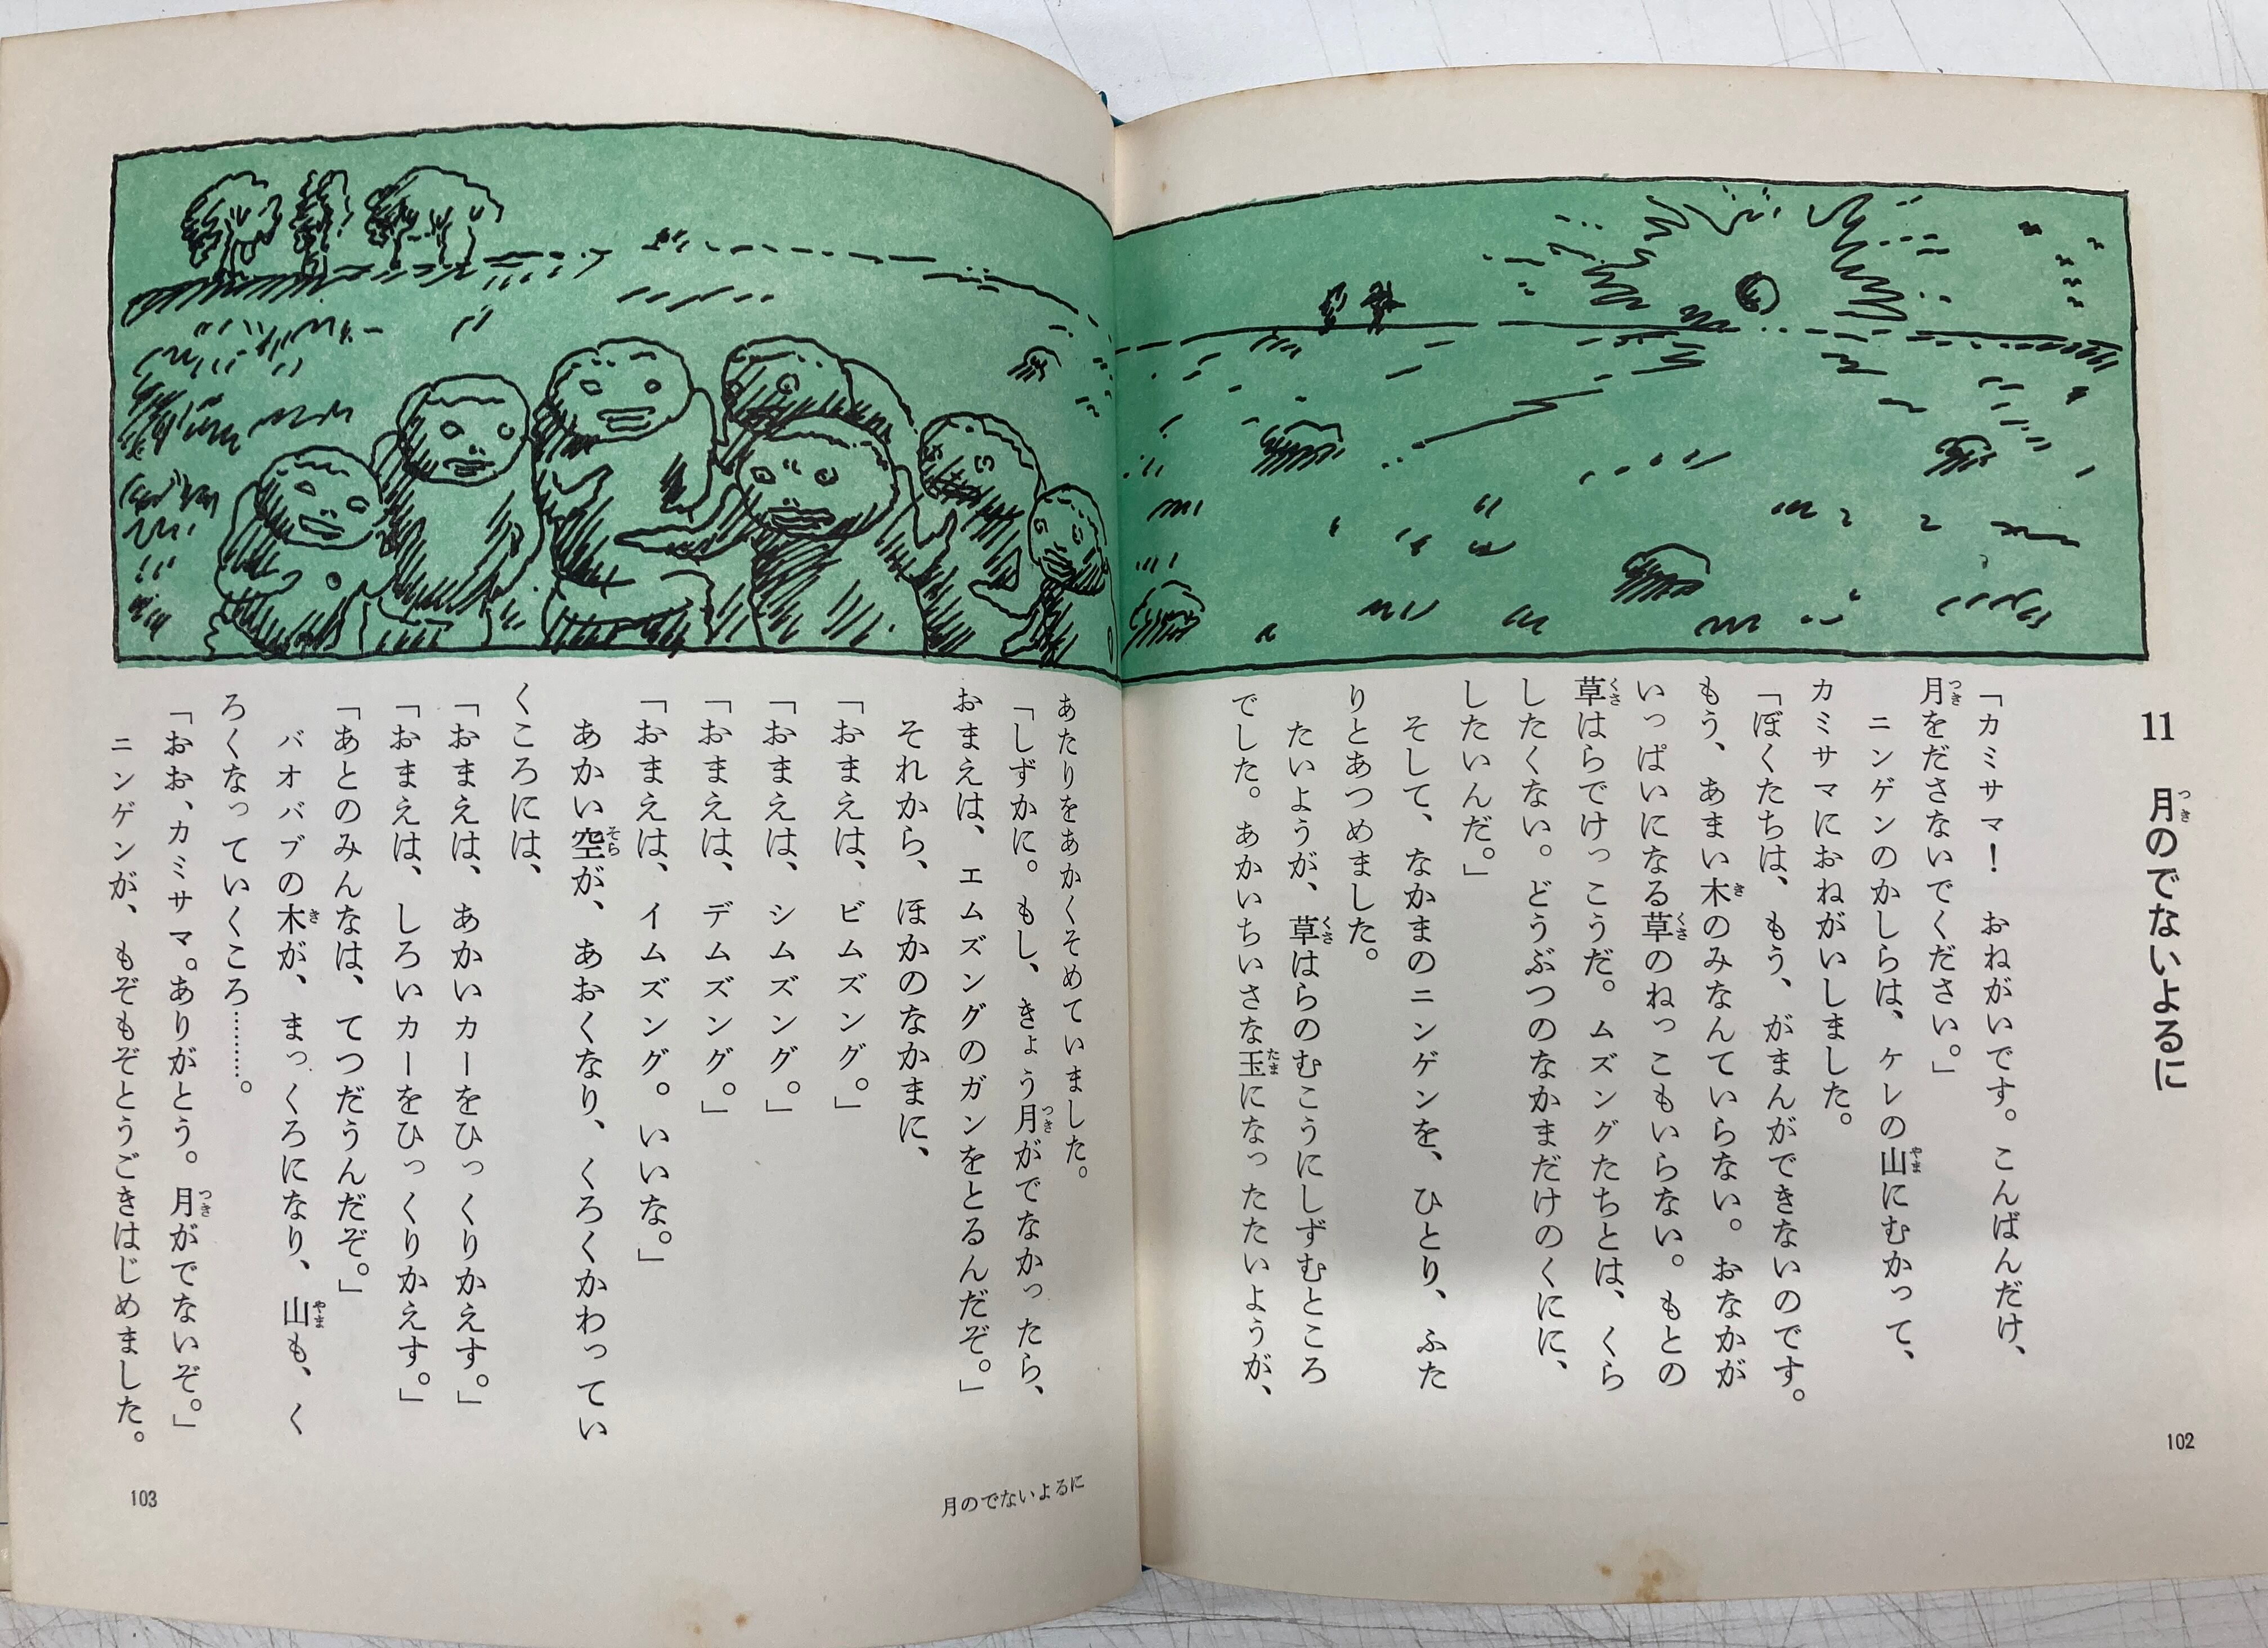 11 月のでないよるに
「カミサマ！　おねがいです。こんばんだけ、
月をださないでください。」
ニンゲンのかしらは、ケレの山にむかって、
カミサマにおねがいしました。
「ぼくたちは、もう、がまんができないのです。
もう、あまい木のみなんていらない。おなかが
いっぱいになる草のねっこもいらない。もとの
草はらでけっこうだ。ムズングたちとは、くら
したくない。どうぶつのなかまだけのくにに、
したいんだ。」
そして、なかまのニンゲンを、ひとり、ふた
りとあつめました。
たいようが、草はらのむこうにしずむところ
でした。あかいちいさな玉になったたいようが、
102
あたりをあかくそめていました。
「しずかに。もし、きょう月がでなかったら、
おまえは、エムズングのガンをとるんだぞ。」
それから、ほかのなかまに、
「おまえは、ビムズング。」
「おまえは、シムズング。」
「おまえは、デムズング。」
「おまえは、イムズング。いいな。」
あかい空が、あおくなり、くろくかわってい
くころには、
「おまえは、あかいカーをひっくりかえす。」
「おまえは、しろいカーをひっくりかえす。」
「あとのみんなは、てつだうんだぞ。」
バオバブの木が、まっくろになり、山も、く
ろくなっていくころ………。
「おお、カミサマ。ありがとう。月がでないぞ。」
ニンゲンが、もぞもぞとうごきはじめました。
月のでないよるに
103